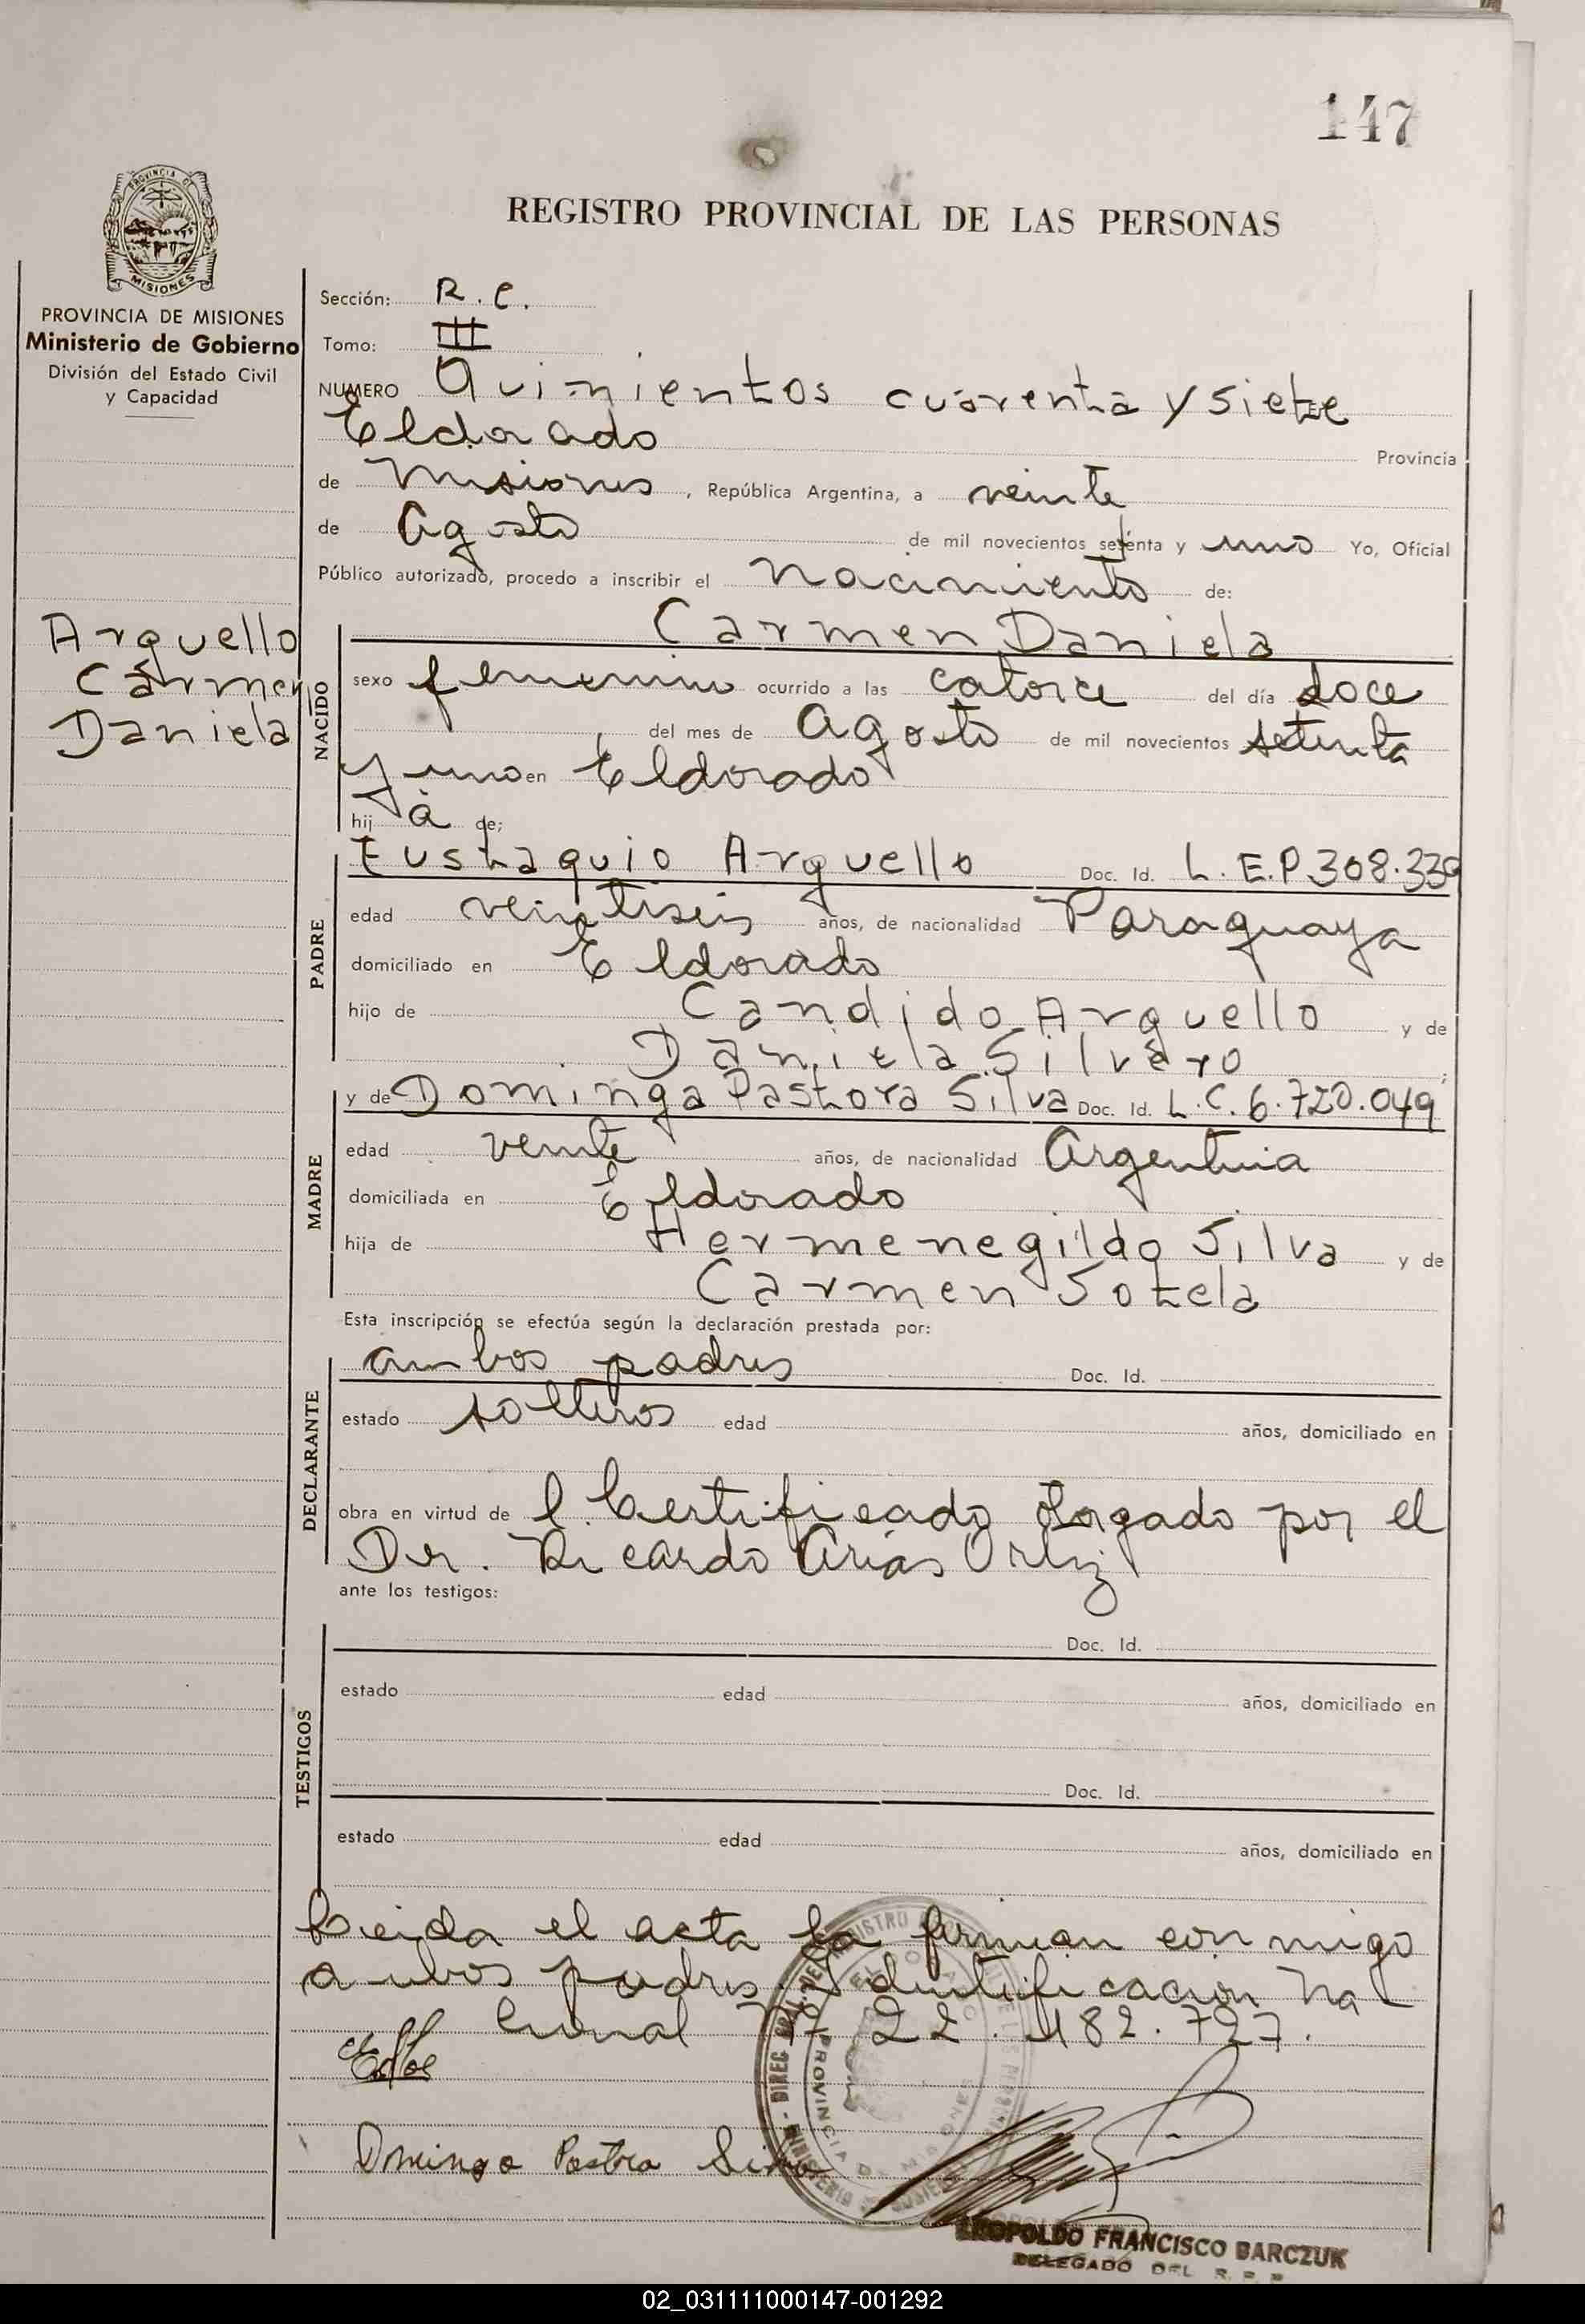 147
REGISTRO PROVINCIAL DE LAS PERSONAS
PROVINCIA DE MISIONES
PROVINCIA DE MISIONES
Ministerio de Gobierno
División del Estado Civil
y Capacidad
Sección: R.C.
Tomo: III
NUMERO Quinientos cuarenta y siete
Eldorado Provincia
de Misiones, República Argentina, a veinte
de Agosto de mil novecientos setenta y uno Yo, Oficial
Público autorizado, procedo a inscribir el nacimiento de:
Arguello
Carmen
Daniela
NACIDO
Carmen Daniela
sexo femenino ocurrido a las catorce del día doce
del mes de Agosto de mil novecientos setenta
y uno en Eldorado
hij a de;
PADRE
Eustaquio Arguello Doc. Id. L.E.P 308.339
edad veintiseis años, de nacionalidad Paraguaya
domiciliado en Eldorado
hijo de Candido Arguello y de
Daniela Silvero
MADRE
y de Dominga Pastora Silva Doc. Id. L.C. 6.720.049
edad veinte años, de nacionalidad Argentina
domiciliada en Eldorado
hija de Hermenegildo Silva y de
Carmen Sotela
Esta inscripción se efectúa según la declaración prestada por:
DECLARANTE
ambos padres Doc. Id.
estado solteros edad años, domiciliado en
obra en virtud de l Certificado otorgado por el
Dr. Ricardo Arias Ortiz
ante los testigos:
TESTIGOS
Doc. Id.
estado edad años, domiciliado en
Doc. Id.
estado edad años, domiciliado en
Leida el acta la firman conmigo
ambos padres. Identificacion Na-
cional Nº 22.182.727.
Dominga Pastora Silva
LEOPOLDO FRANCISCO BARCZUK
DELEGADO DEL R. P. P.
02_031111000147-001292